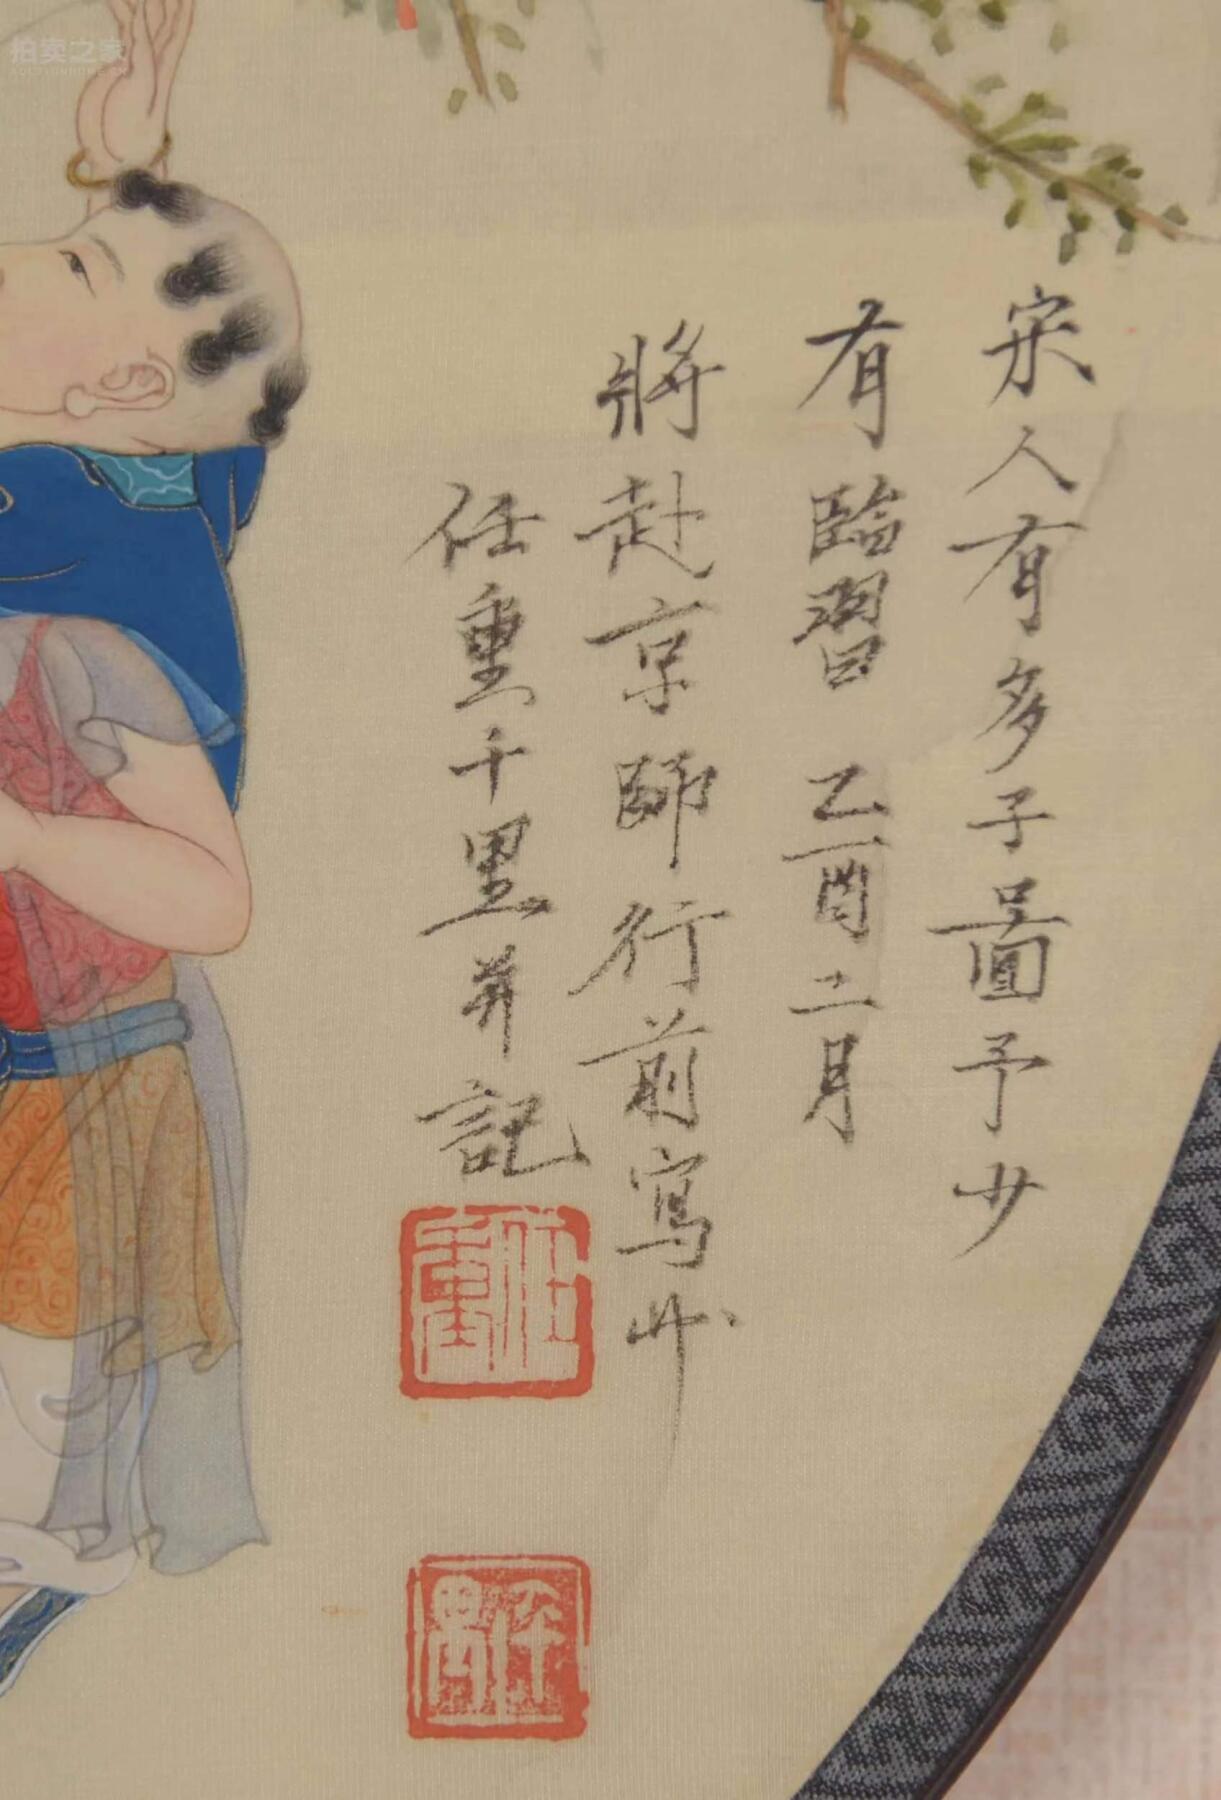 宋人有多子圖予少
有臨習 乙酉二月
將赴京師行前寫此
任重千里并記
任重
千里
拍卖之家